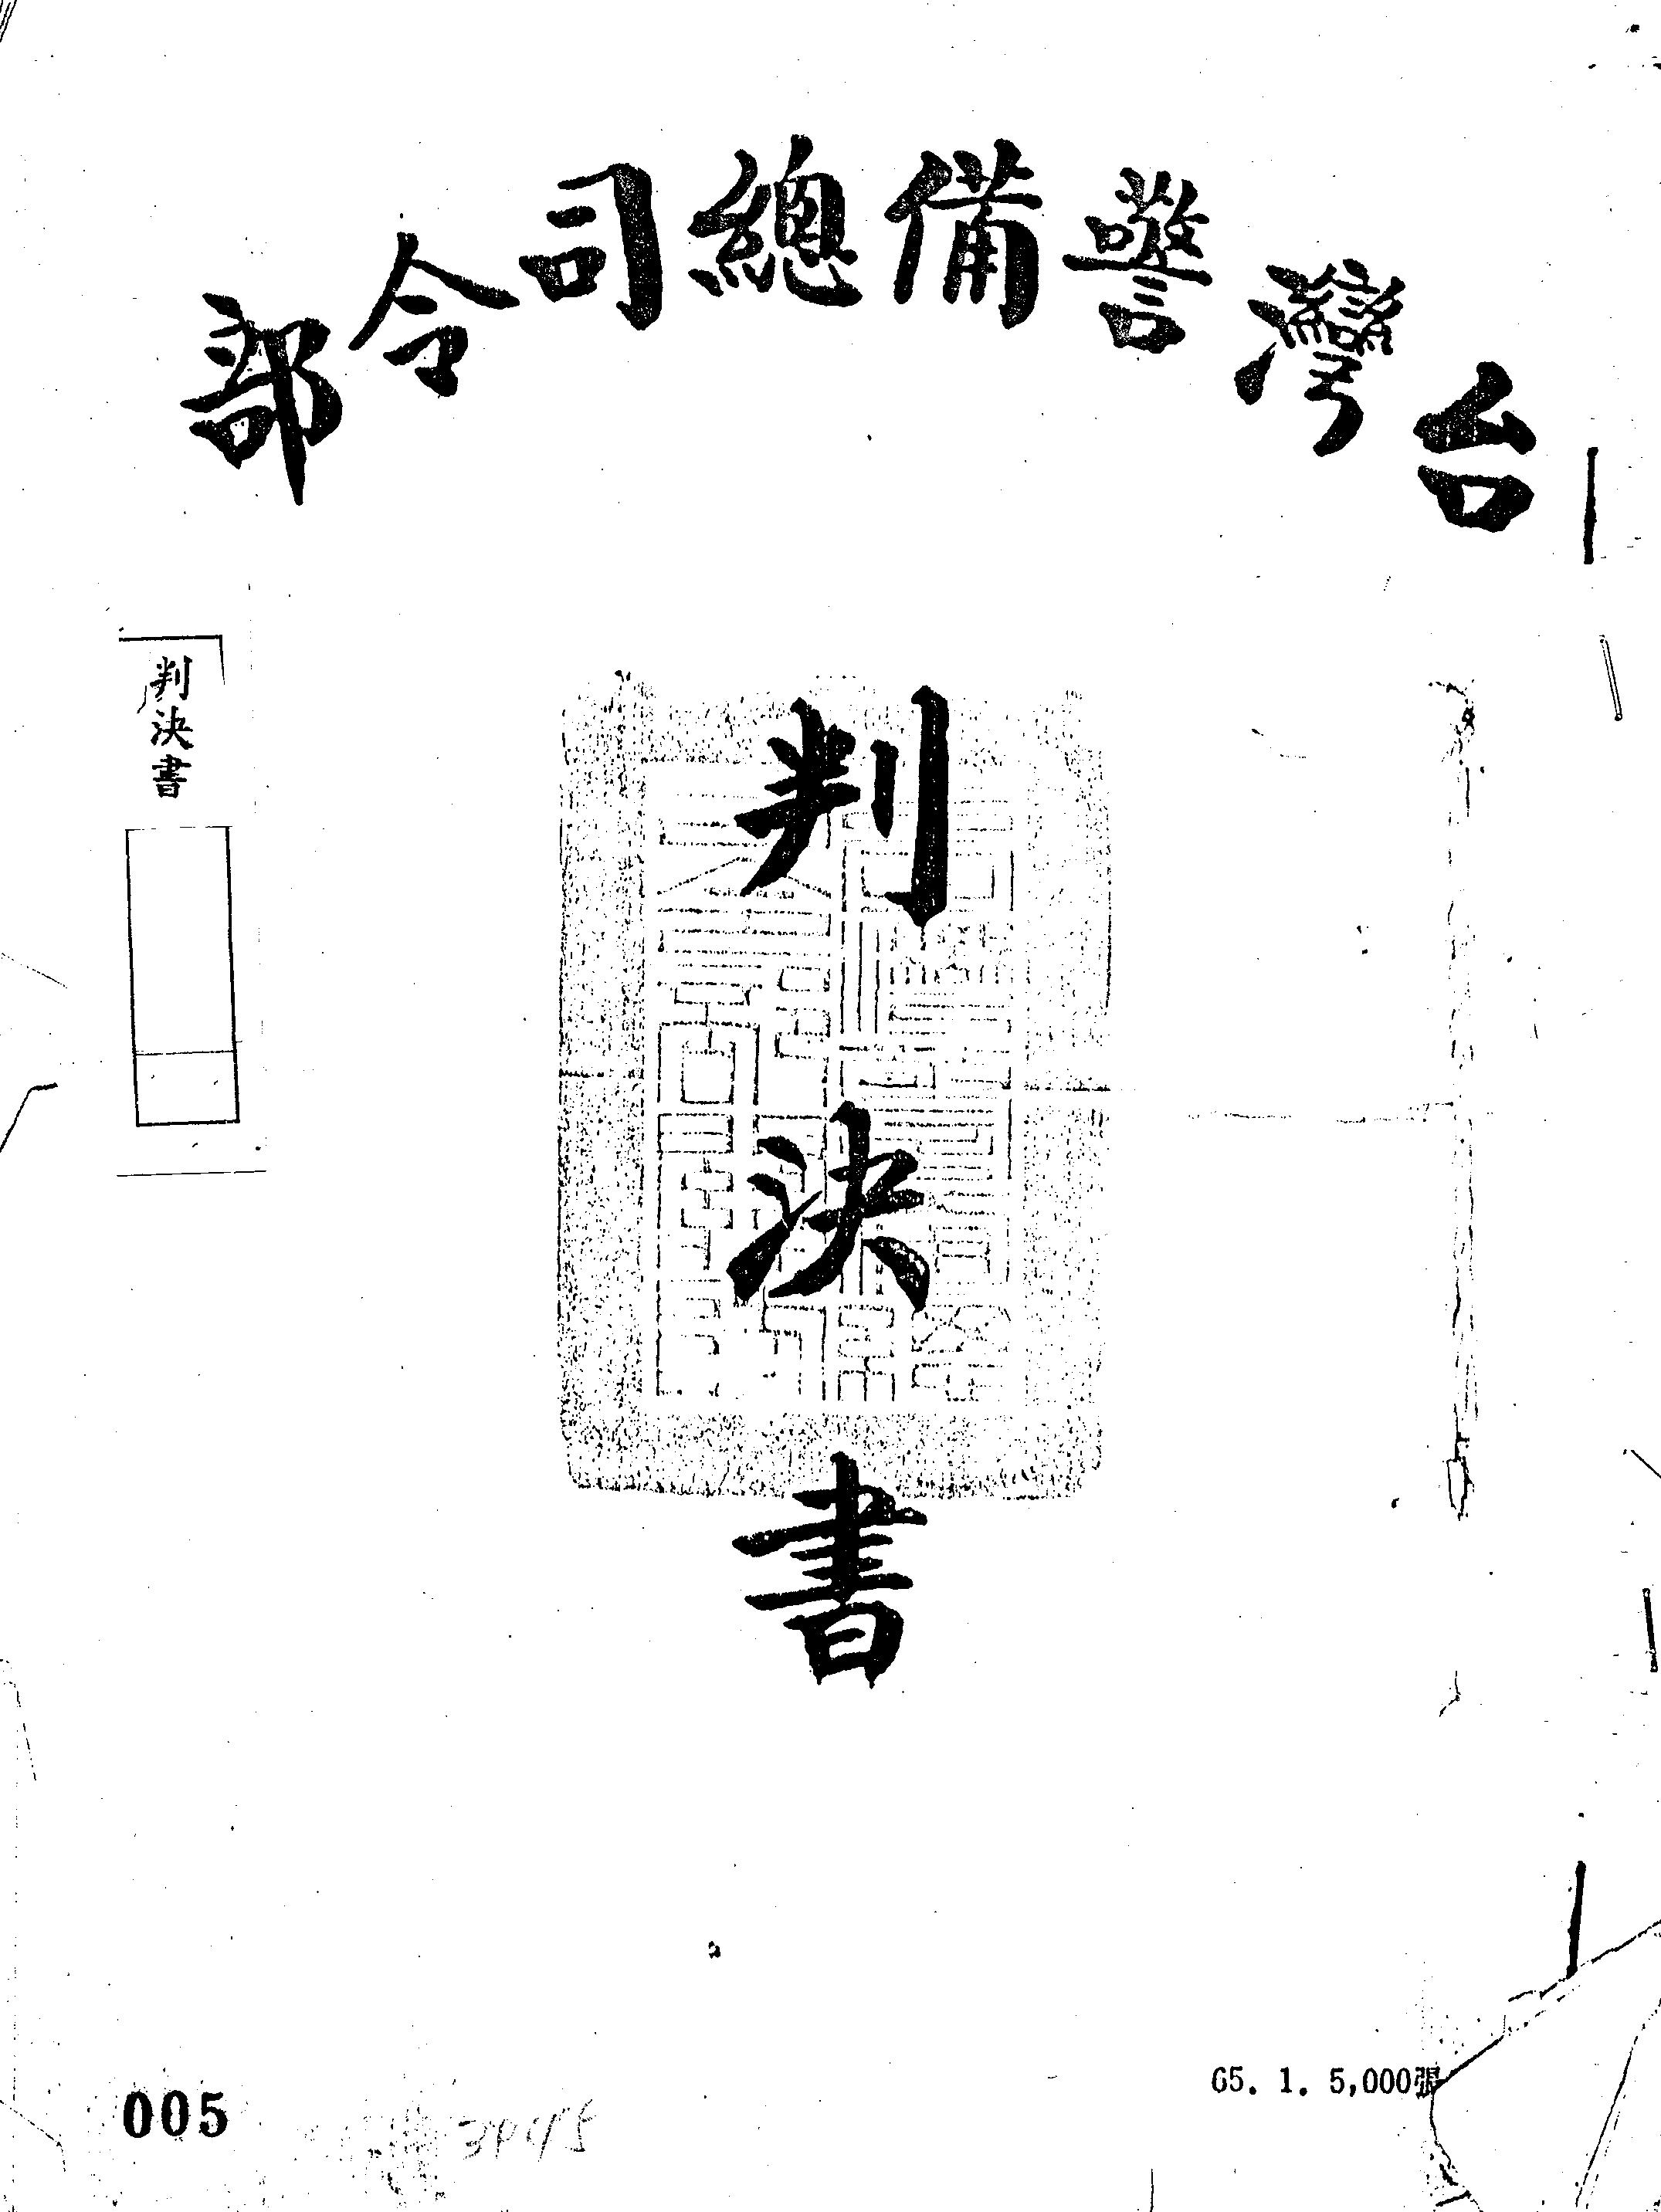 台灣警備總司令部
判決書
判決書
65. 1. 5,000張
005